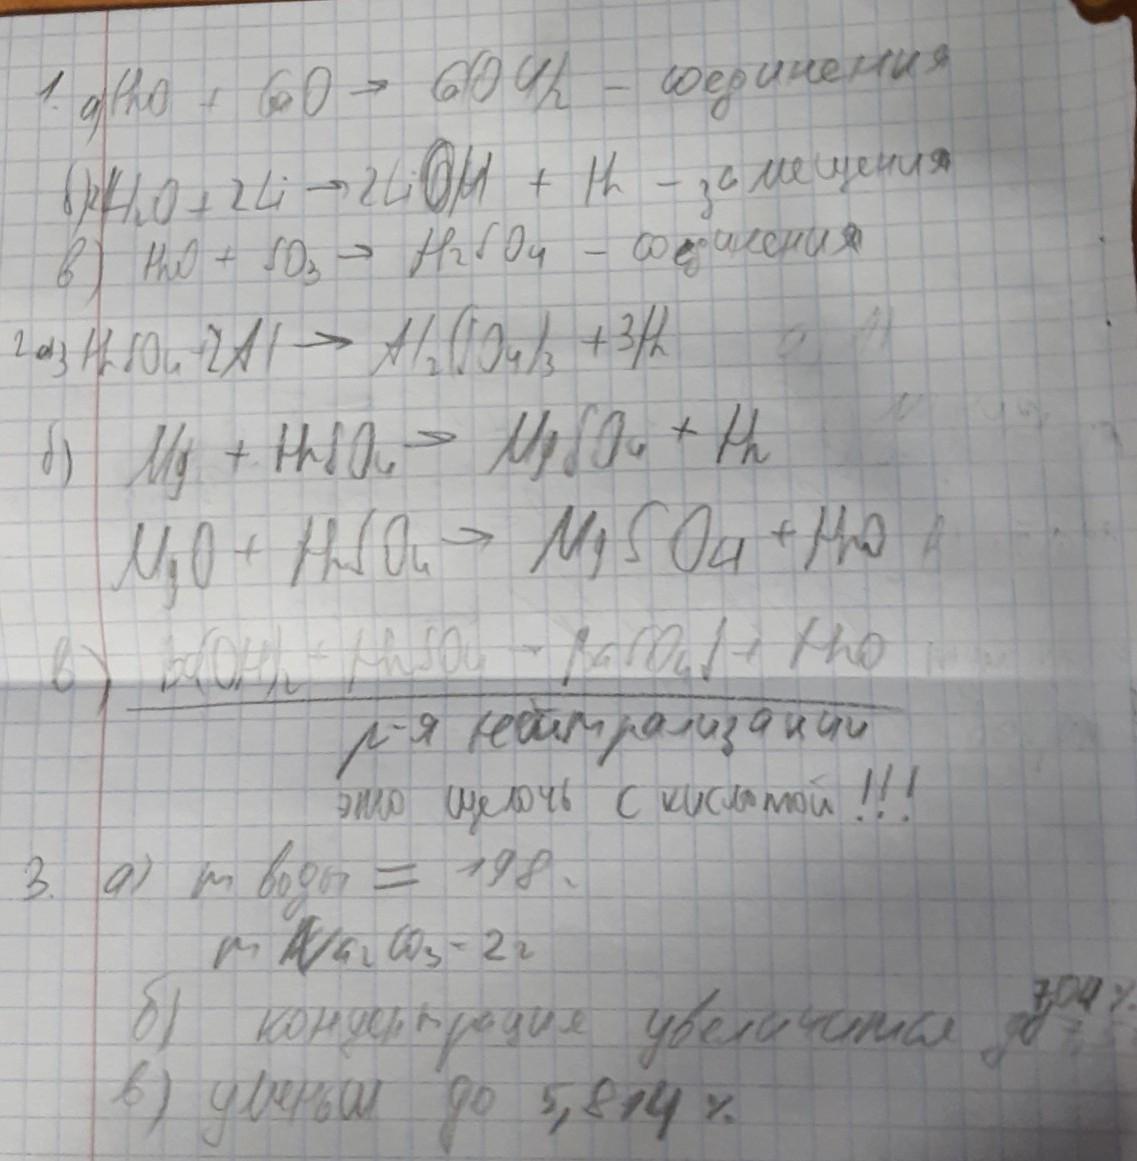 1. а) H2O + CaO → Ca(OH)2 - соединения
б) 2H2O + 2Li → 2LiOH + H2 - замещения
в) H2O + SO3 → H2SO4 - соединения
2. а) 3H2SO4 + 2Al → Al2(SO4)3 + 3H2
б) Mg + H2SO4 → MgSO4 + H2
MgO + H2SO4 → MgSO4 + H2O
в) Ba(OH)2 + H2SO4 → BaSO4↓ + H2O
р-я нейтрализации
это щелочь с кислотой!!!
3. а) m воды = 198.
m Na2CO3 - 2г
б) концентрация увеличится до 7,04%
в) уменьш до 5,814%